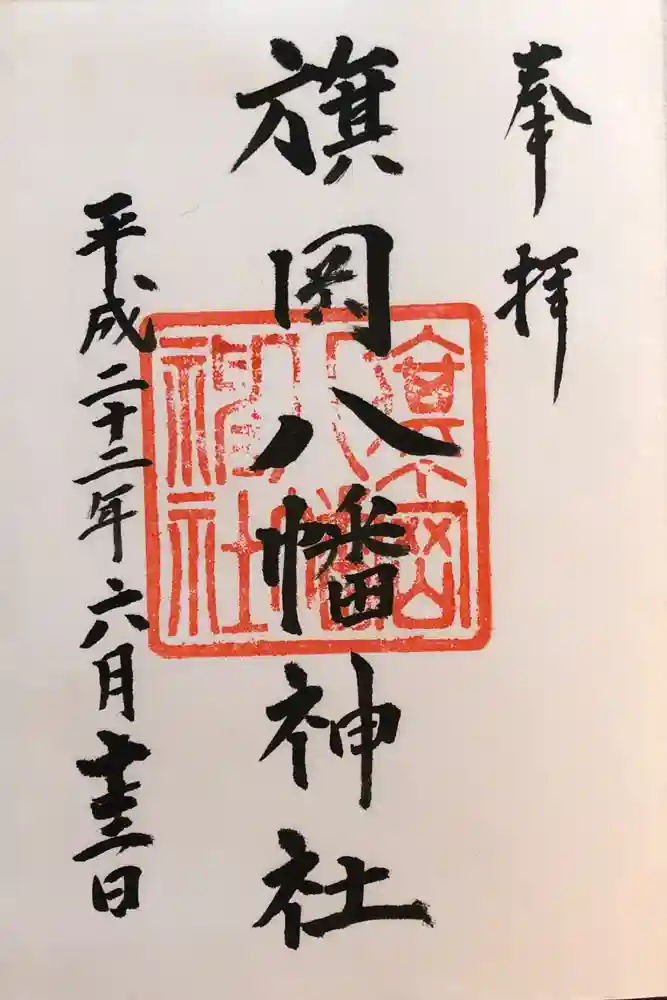 奉拝
旗岡八幡神社
平成二十二年六月十三日
旗岡
八幡
神社